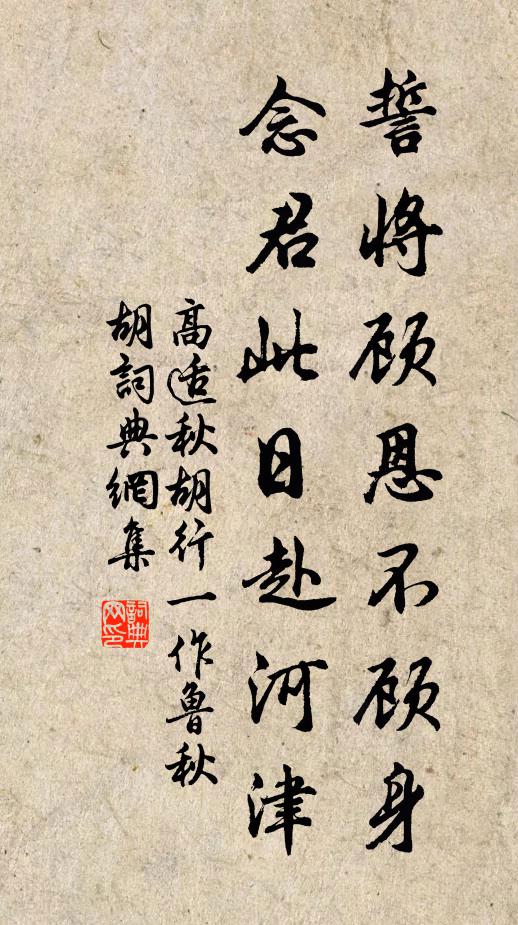 誓将顾恩不顾身
念君此日赴河津
高适秋胡行一作鲁秋
胡詞典網集
詞典网印